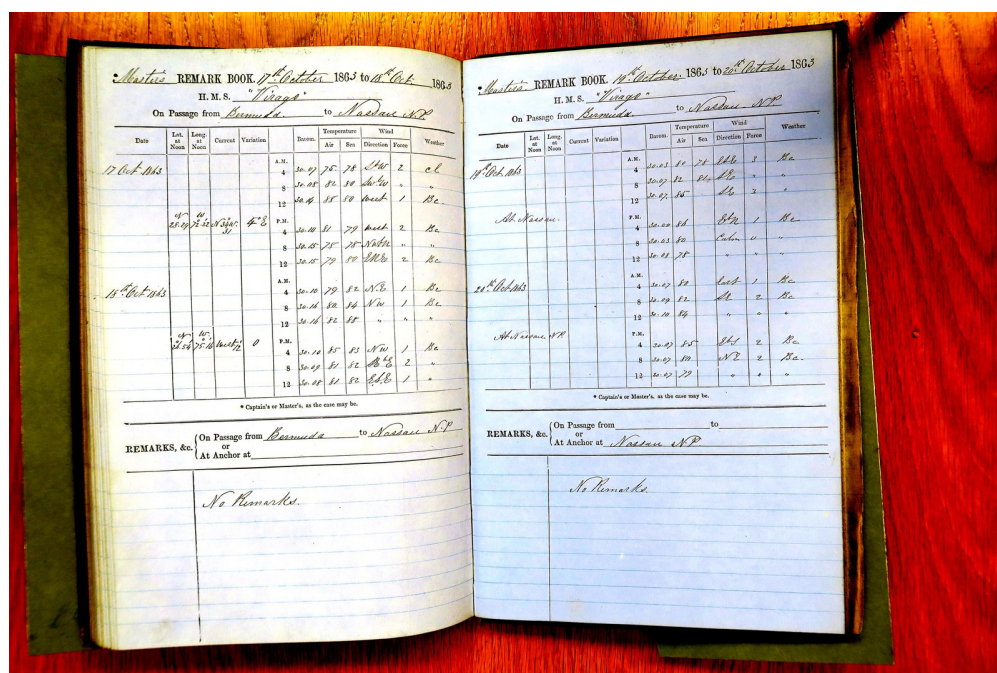 * Master's REMARK BOOK. 17th October 1863 to 18th Oct. 1863
H. M. S. "Virago"
On Passage from Bermuda. to Nassau N.P
Date Lat. at Noon Long. at Noon Current Variation Barom. Temperature Air Sea Wind Direction Force Weather
17 Oct 1863
A.M.
4 30.07 75 78 2
8 30.08 82 80 " "
12 30.14 85 80 West 1 Bc
N W
P.M.
4 30.10 81 79 West 2 Bc
8 30.15 75 78 " "
12 30.15 79 80 2 Bc
18th Oct 1863
A.M.
4 30.10 79 82 N.E 1 Bc
8 30.16 80 84 N W 1 Bc
12 30.16 82 85 " " "
N W
0
P.M.
4 30.10 85 83 N W 1 Bc
8 30.09 81 82 2 "
12 30.08 81 82 EbE 1 "
* Captain's or Master's, as the case may be.
REMARKS, &c. On Passage from Bermuda to Nassau N.P
or
At Anchor at
No Remarks.
* Master's REMARK BOOK. 19th October. 1863 to 20th October 1863
H. M. S. "Virago"
On Passage from Bermuda. to Nassau N.P
Date Lat. at Noon Long. at Noon Current Variation Barom. Temperature Air Sea Wind Direction Force Weather
19th Oct. 1863
A.M.
4 30.03 80 78 3 Bc
8 30.07 82 " "
12 30.07 85 "
At Nassau.
P.M.
4 30.00 86 1 Bc
8 30.03 80 Calm "
12 30.08 78 " " "
20th Oct. 1863
A.M.
4 30.07 80 East 1 Bc
8 30.09 82 2 Bc
12 30.10 84 " " "
At Nassau N.P.
P.M.
4 30.07 85 2 Bc
8 30.07 80 N.E 2 Bc.
12 30.07 79 " " "
* Captain's or Master's, as the case may be.
REMARKS, &c. On Passage from to
or
At Anchor at Nassau N.P
No Remarks.